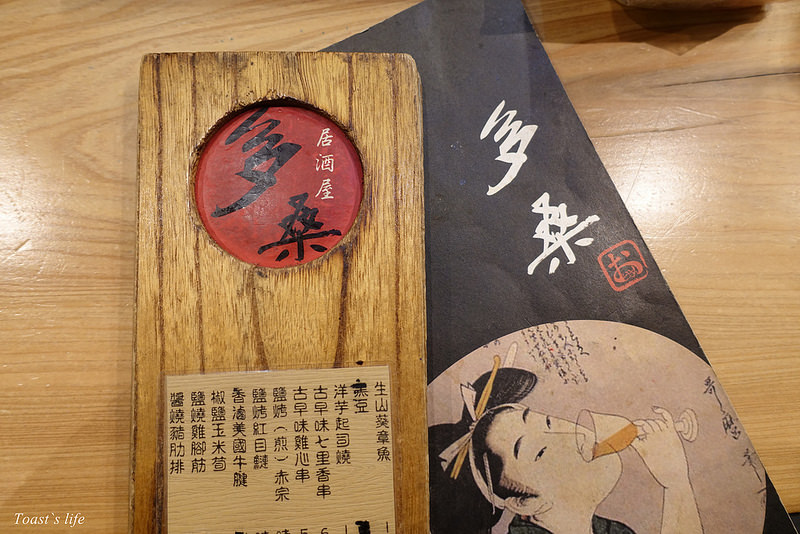 多桑
居酒屋
多桑
お
生山葵章魚
洋芋起司燒
古早味七里香串
古早味雞心串
鹽烤(煎)赤宗
鹽烤紅目鰱
香滷美國牛腱
椒鹽玉米筍
鹽燒雞腳筋
醬燒豬肋排
Toast`s life